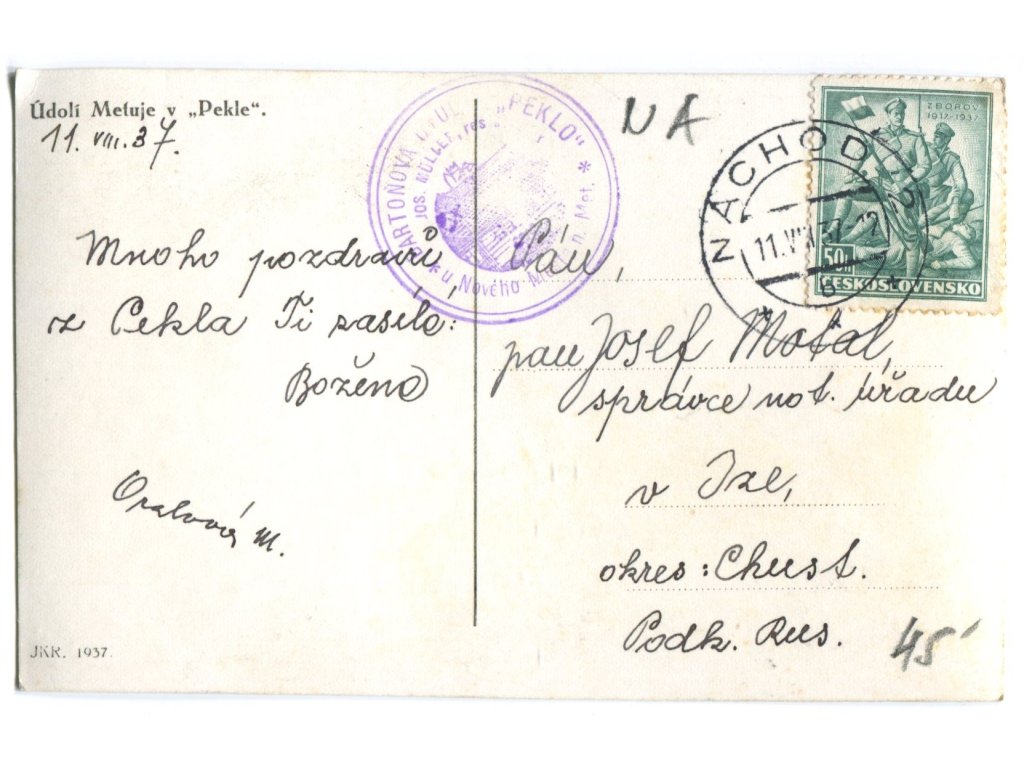 Údolí Metuje v „Pekle".
11. VIII. 37.
Mnoho pozdravů
z Pekla Ti zasílá:
Božena
M.
JKR. 1937.
BARTOŇOVA ÚTULNA „PEKLO" *
JOS. MÜLLER, res
* u Nového Města n. Met.
NA
NÁCHOD 2
11. VIII. 37
ZBOROV
1917-1937
50h
ČESKOSLOVENSKO
Pán,
pan Josef Motal,
správce not. úřadu
v Ize,
okres: Chust.
Podk. Rus.
45